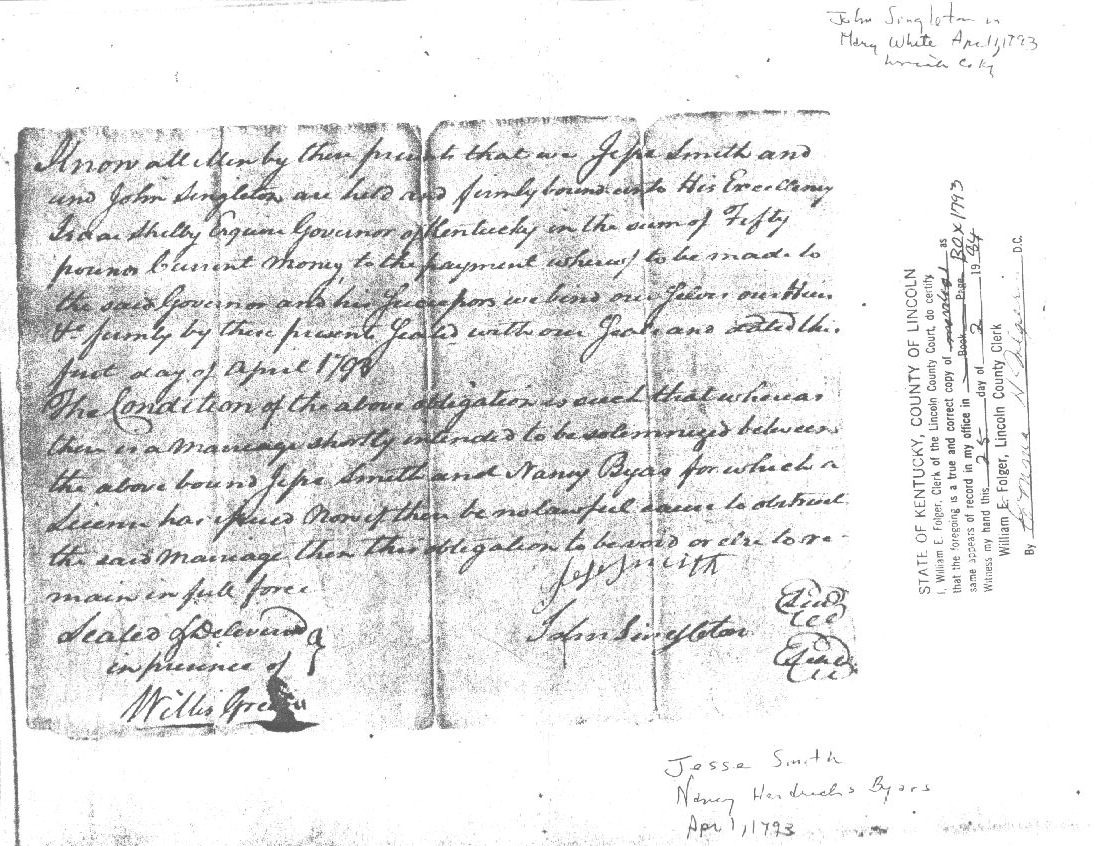 John Singleton m
Mary White Apr 1, 1793
Lincoln Co Ky
Know all Men by these presents that we Jesse Smith and
and John Singleton are held and firmly bound unto His Excellency
Isaac Shelby Esquire Governor of Kentucky in the sum of Fifty
pounds Current Money to the payment whereof to be made to
the said Governor and his Successors we bind our Selves our Heirs
&c firmly by these presents Sealed with our Seals and dated this
first day of April 1793
The Condition of the above obligation is such that whereas
there is a Marriage shortly intended to be solemnized between
the above bound Jesse Smith and Nancy Byas for which a
License has issued Now if there be no lawful cause to obstruct
the said Marriage then this obligation to be void or else to re-
main in full force
Jesse Smith
Sealed & Delivered
John Singleton
in presence of
Willis Green
STATE OF KENTUCKY, COUNTY OF LINCOLN
I, William E. Folger, Clerk of the Lincoln County Court, do certify
that the foregoing is a true and correct copy of marriage as
same appears of record in my office in Book Page Box 1793
Witness my hand this 25 day of 2 1984
William E. Folger, Lincoln County Clerk
By D.C.
Jesse Smith
Nancy Hendricks Byars
Apr 1, 1793